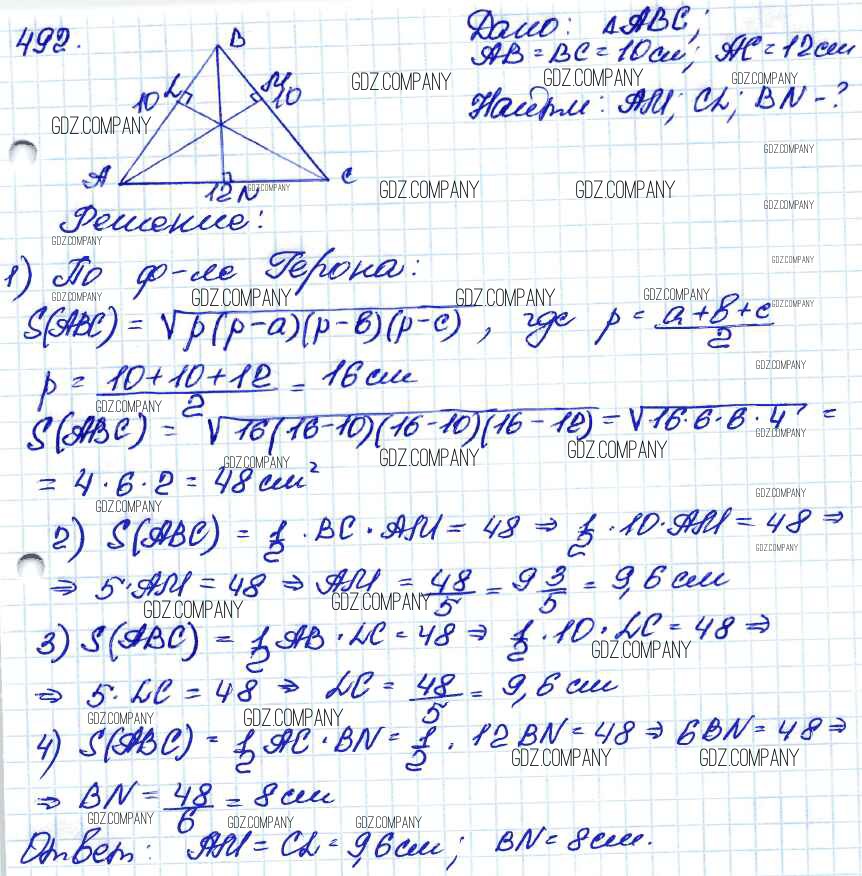 492.
Дано: △ABC;
AB = BC = 10см; AC = 12см
Найти: AM; CL; BN - ?
B
L
M
10
10
A
C
12
N
Решение:
1) По ф-ле Герона:
S(ABC) = √p(p-a)(p-b)(p-c), где p = a+b+c/2
p = 10+10+12/2 = 16 см
S(ABC) = √16(16-10)(16-10)(16-12) = √16·6·6·4 =
= 4·6·2 = 48 см²
2) S(ABC) = 1/2 · BC · AM = 48 ⇒ 1/2 · 10 · AM = 48 ⇒
⇒ 5·AM = 48 ⇒ AM = 48/5 = 9 3/5 = 9,6 см
3) S(ABC) = 1/2 AB · LC = 48 ⇒ 1/2 · 10 · LC = 48 ⇒
⇒ 5·LC = 48 ⇒ LC = 48/5 = 9,6 см
4) S(ABC) = 1/2 AC · BN = 1/2 · 12 BN = 48 ⇒ 6BN = 48 ⇒
⇒ BN = 48/6 = 8 см
Ответ: AM = CL = 9,6 см; BN = 8 см.
GDZ.COMPANY